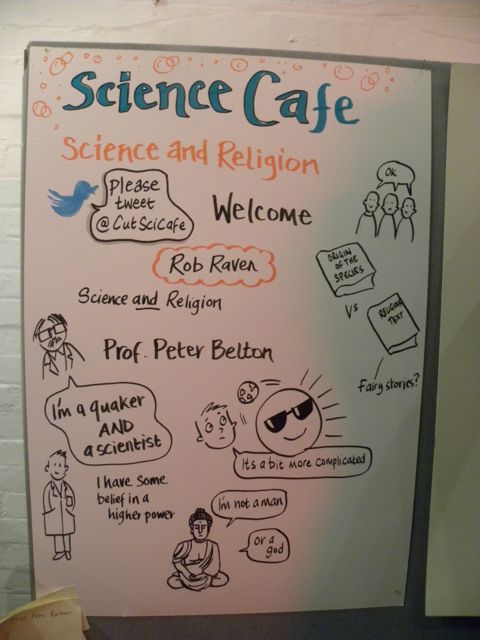 Science Cafe
Science and Religion
Please
tweet
@CutSciCafe
Welcome
OK
Rob Raven
Science and Religion
ORIGIN
OF THE
SPECIES
Vs
RELIGIOUS
TEXT
Fairy stories?
Prof. Peter Belton
I'm a quaker
AND
a scientist
Its a bit more complicated
I have some
belief in a
higher power
I'm not a man
or a
god